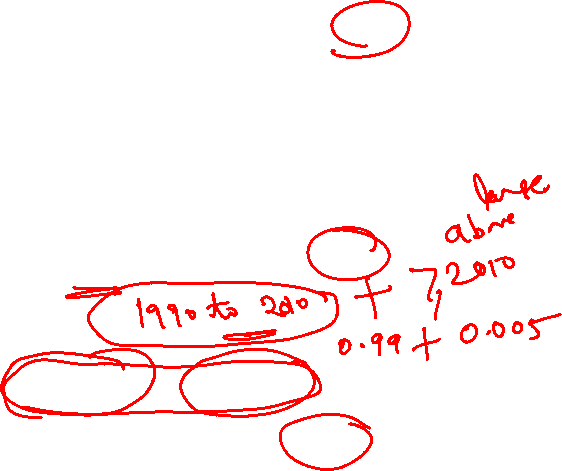 above
1990 to 2010 + 7,2010
0.99 + 0.005